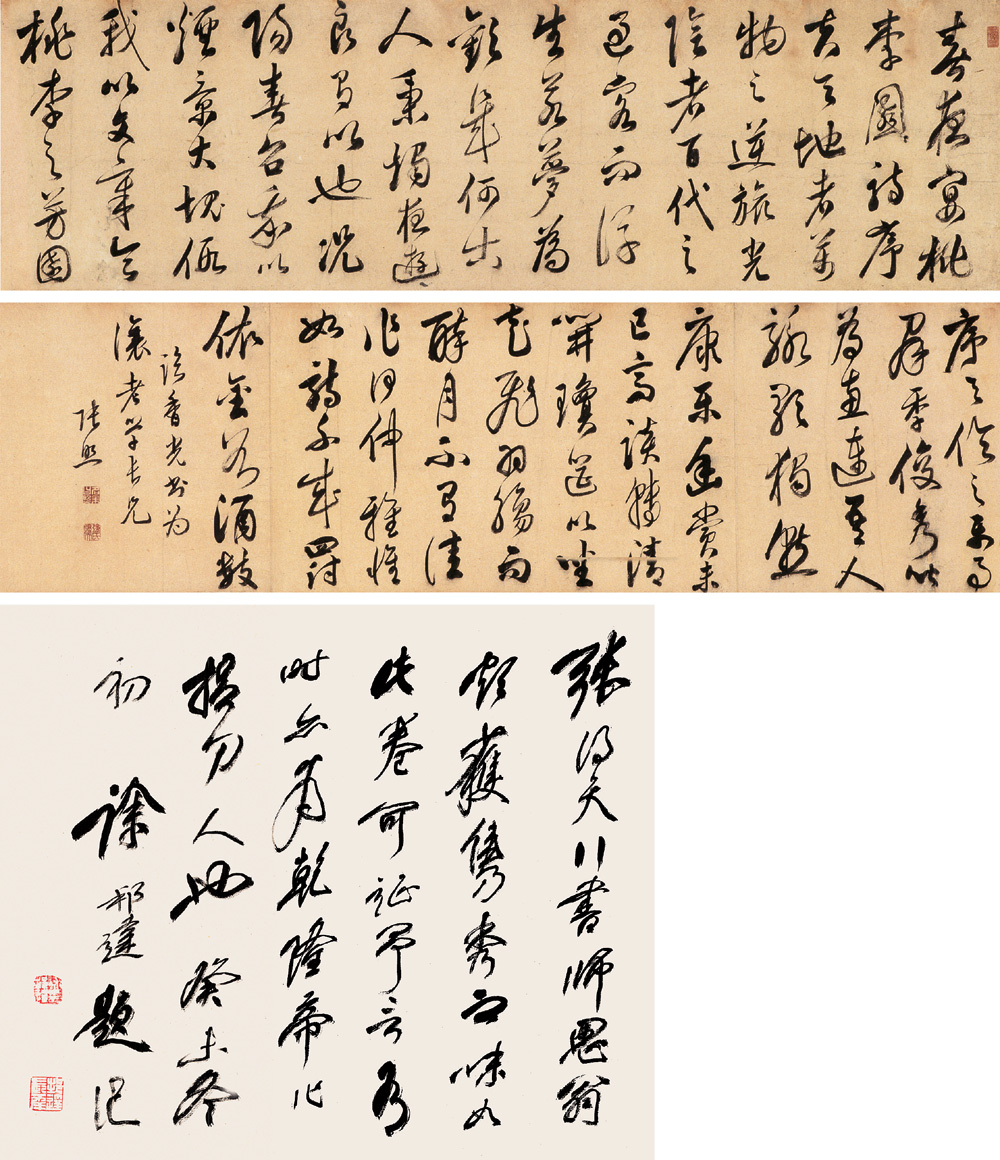 春夜宴桃
李園詩序
夫天地者萬
物之逆旅光
陰者百代之
過客而浮
生若夢為
歡幾何古
人秉燭夜遊
良有以也況
陽春召我以
煙景大塊假
我以文章會
桃李之芳園
序天倫之樂事
群季俊秀皆
為惠連吾人
詠歌獨慙
康樂幽賞未
已高談轉清
開瓊筵以坐
花飛羽觴而
醉月不有佳
作何伸雅懷
如詩不成罰
依金谷酒數
臨香光書为
老學長兄
張照
張得天行書師思翁
頗獲雋秀之味如
此卷可証予言乃
时亦有乾隆帝代
捉刀人也癸未冬
初徐邦達題記